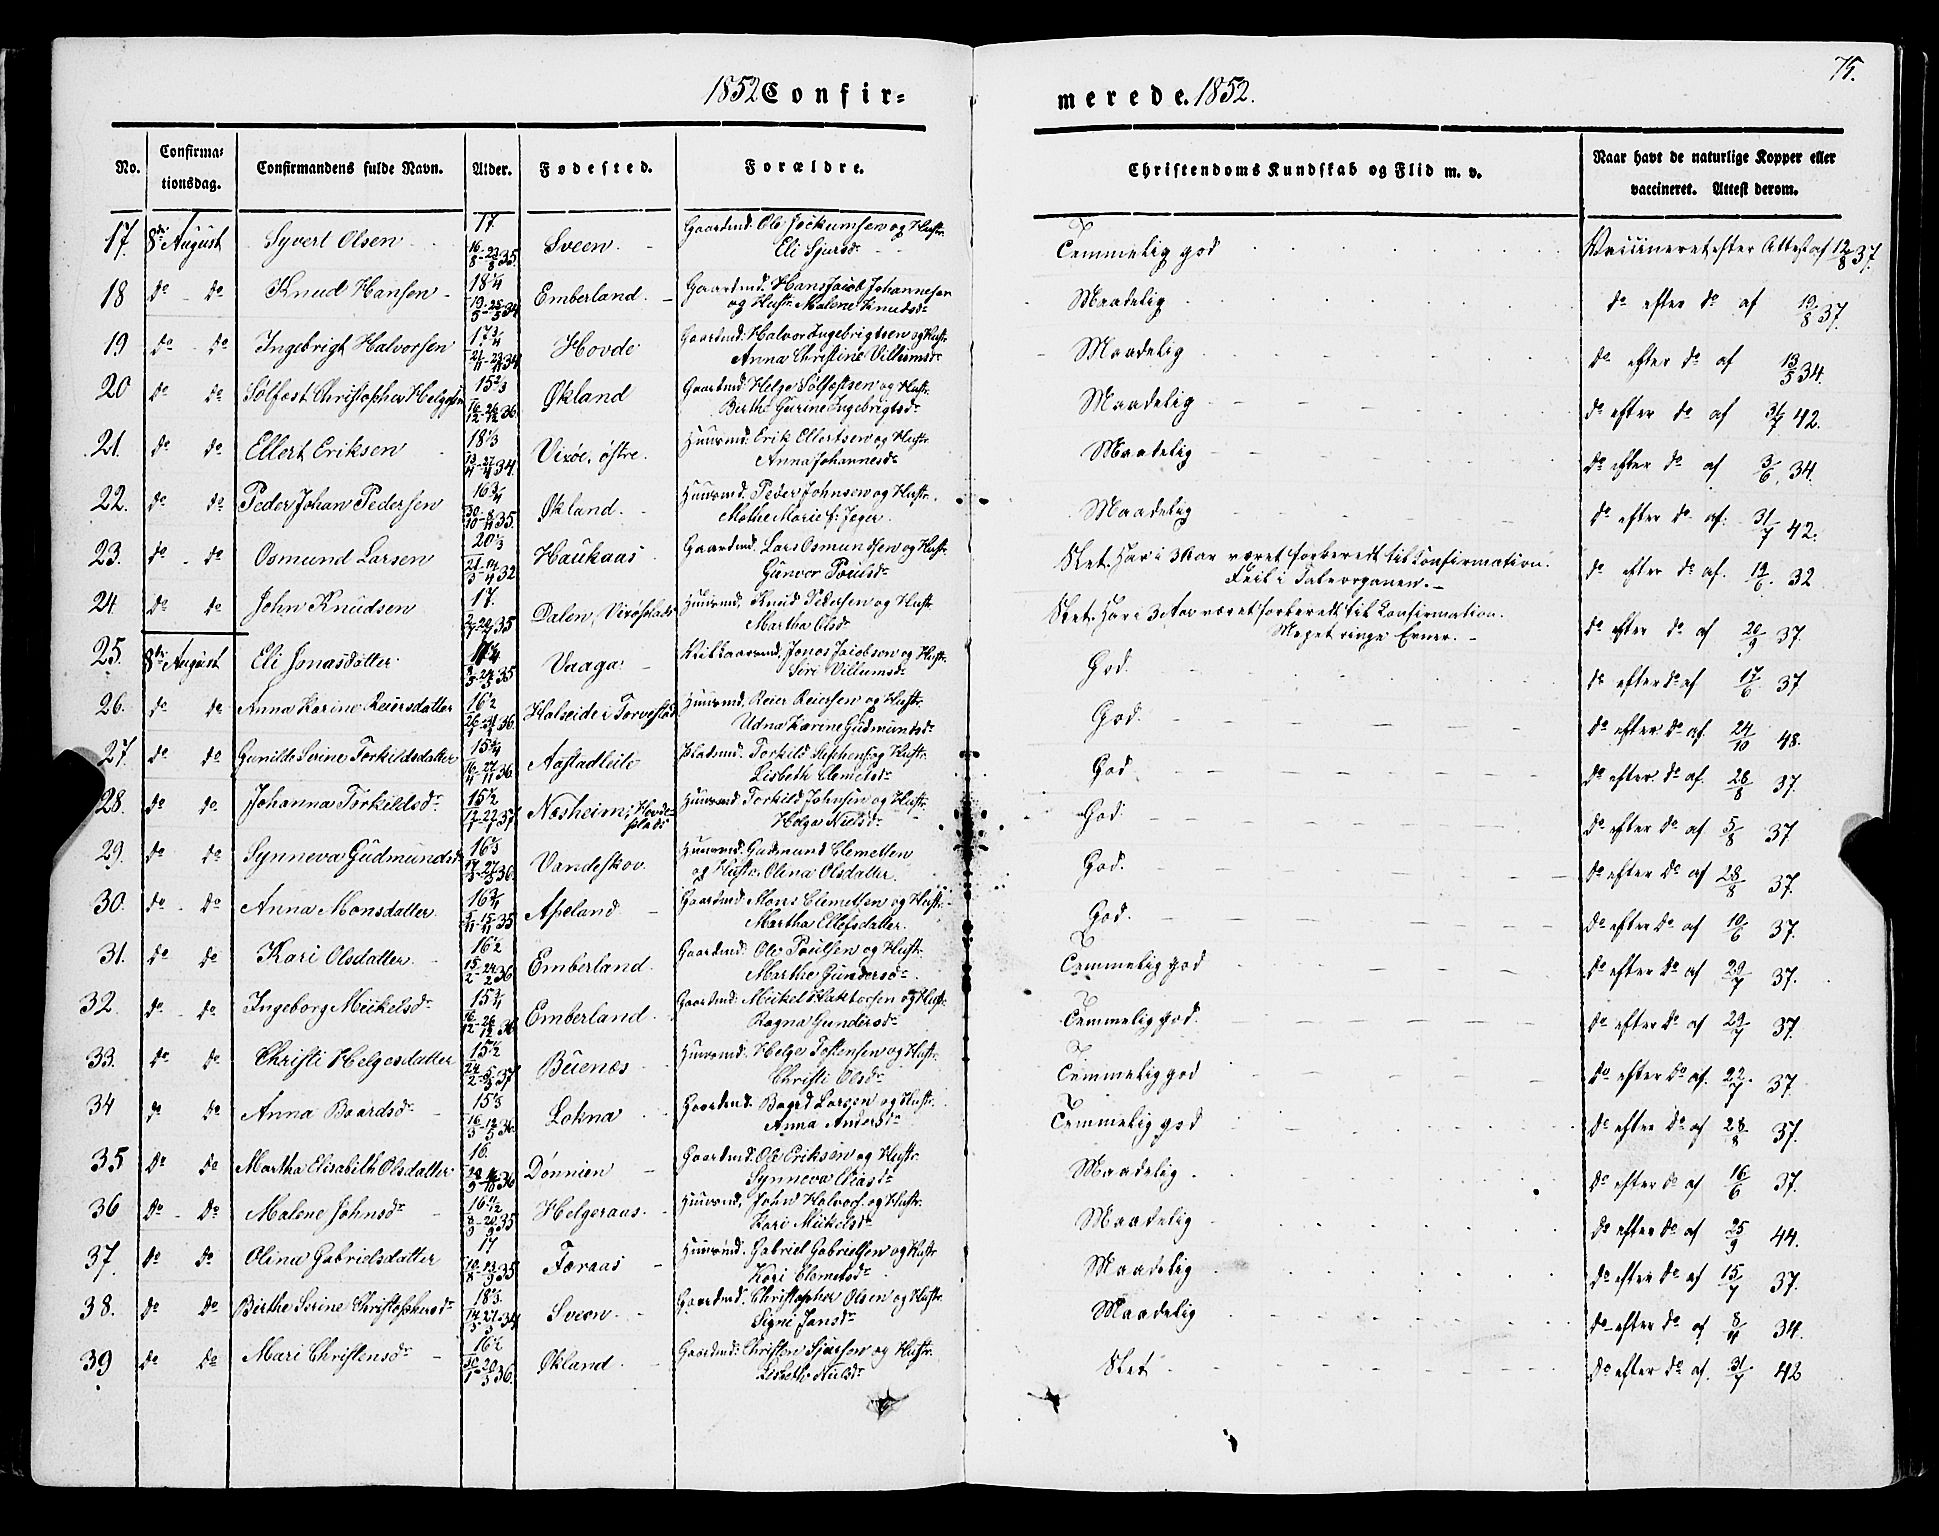 75.
1852 Confir= merede. 1852.
No. Confirmationsdag. Confirmandens fulde Navn. Alder. Fødested. Forældre. Christendoms Kundskab og Flid m. v. Naar havt de naturlige Kopper eller vaccineret. Attest derom.
17. 8de August Syvert Olsen 17. 16/8-23/8 35. Sveen. Gaardmd. Ole Jockumsen og Hustr. Eli Sjursdr Temmelig god Vaccineret efter Attest af 12/8 37.
18 do do Knud Hansen 18¼ 19/5-25/5 34 Emberland. Gaardmd. Hans Jacob Johannesen og Hustr. Malene Knudsdr Maadelig do efter do af 19/8 37.
19 do do Ingebrigt Halvorsen 17¾ 34 Hovde Gaardmd. Halvor Ingebrigtsen og Hustr. Anna Christine Villumsdr Maadelig do efter do af 13/5 34.
20 do do Solfest Christopher Helgesen 15⅔ 36 Økland Gaardmd. Helge Solfestsen og Hustr. Berthe Gurine Ingebrigtsdr Maadelig do efter do af 31/7 42.
21. do do Ellert Eriksen 18⅓ 34. Vixøe, østre. Huusmd. Erik Ellertsen og Hustr. Anna Johannesdr Maadelig do efter do af 3/6 34.
22. do do Peder Johan Pedersen 16¾ 30/10-8/11 35. Økland. Huusmd. Peder Johnsen og Hustr. Mathe Marie f. Jeger. Maadelig do efter do af: 31/7 42.
23. do do Osmund Larsen 20⅓ 21/3-14/4 32 Haukaas Gaardmd. Lars Osmundsen og Hustr. Gunvor Poulsdr Slet. Har i 3 Aar været forberedt til Confirmation. Feil i Taleorganen. do efter do af. 19/6. 32
24 do do John Knudsen 17. 35 Dalen, Vixøeplads Huusmd. Knud Pedersen og Hustr. Martha Olsdr Slet. Har i 3 Aar været forberedt til Confirmation. Meget ringe Evner. do efter do af 20/9 37.
25. 8de August Eli Jonasdatter 35 Vaaga Jonas Jacobsen og Hustr. Siri Villumsdr God. do efter do af 17/6 37
26. do do Anna Karine Reiersdatter 16½ 36. Halseide i Torvestad Huusmd. Reier Reiersen og Hustr. Udna Karine Gudmundsdr God. do efter do af. 24/10 48.
27. do do Gunilde Serine Torkildsdatter 15¾ 16/11-27/11 36. Aastadleite Pladsmd. Torkild Stephens. og Hustr. Lisbeth Clemetsdr God do efter do af. 28/8 37.
28. do do Johanna Torkildsdr 15½ 37 Næsheim, Hovdeplads Huusmd. Torkild Johnsen og Hustr. Helga Nielsdr God. do efter do af 5/8 37.
29. do do Synneva Gudmundsd 16⅓ 36. Vandeskov. Huusmd. Gudmund Clemetsen og Hustr. Olina Olsdatter. God. do efter do af 28/8 37.
30. do do Anna Monsdatter. 16¾ 5/11-15/11 35 Apeland Gaardmd. Mons Clemetsen og Hustr. Martha Ellefsdatter. God. do efter do af 10/6 37.
31. do do Kari Olsdatter. 16½ 15/2-24/2 36 Emberland. Gaardmd. Ole Poulsen og Hustr. Marthe Gundersdr. Temmelig god do efter do af 29/7 37.
32. do do Ingeborg Mickelsdr 15¾ 16/12-26/12 36 Emberland Gaardmd. Mickel Haktorsen og Hustr. Ragna Gundersdr Temmelig god. do efter do af 29/7 37.
33. do do Christi Helgesdatter 15½ 24/2-5/3 37 Buenes Huusmd. Helge Tostensen og Hustr. Christi Olsdr Temmelig god do efter do af. 22/7 37.
34 do do Anna Baardsdr 36. Lokna Gaardmd. Baard Larsen og Hustr. Anna Andersdr Temmelig god do efter do af 28/8 37.
35 do do Martha Elisabeth Olsdatter 16. 36 Dønnien Gaardmd. Ole Eriksen og Hustr. Synneva Eliasdr Maadelig do efter do af 16/6 37.
36 do do Malene Johnsdr 16 11/12 8/9-20/9 35 Helgeraas. Huusmd. John Halvors. og Hustr. Kari Mickelsdr Maadelig do efter do af 25/9 44.
37. do do Olina Gabrielsdatter 17 35 Føraas Huusmd. Gabriel Gabrielsen og Hustr Kari Clemetsdr Maadelig do efter do af 15/7 37.
38. do do Birthe Serine Christophersdr 18⅓ 34 Sveen. Gaardmd. Christopher Olsen og Hustr. Signi Jansdr Maadelig do efter do af 8/11 34.
39 do do Mari Christensdr 16½ 36. Økland. Gaardmd. Christen Sjursen og Hustr. Lisbeth Nielsdr Slet do efter do af. 31/7 42